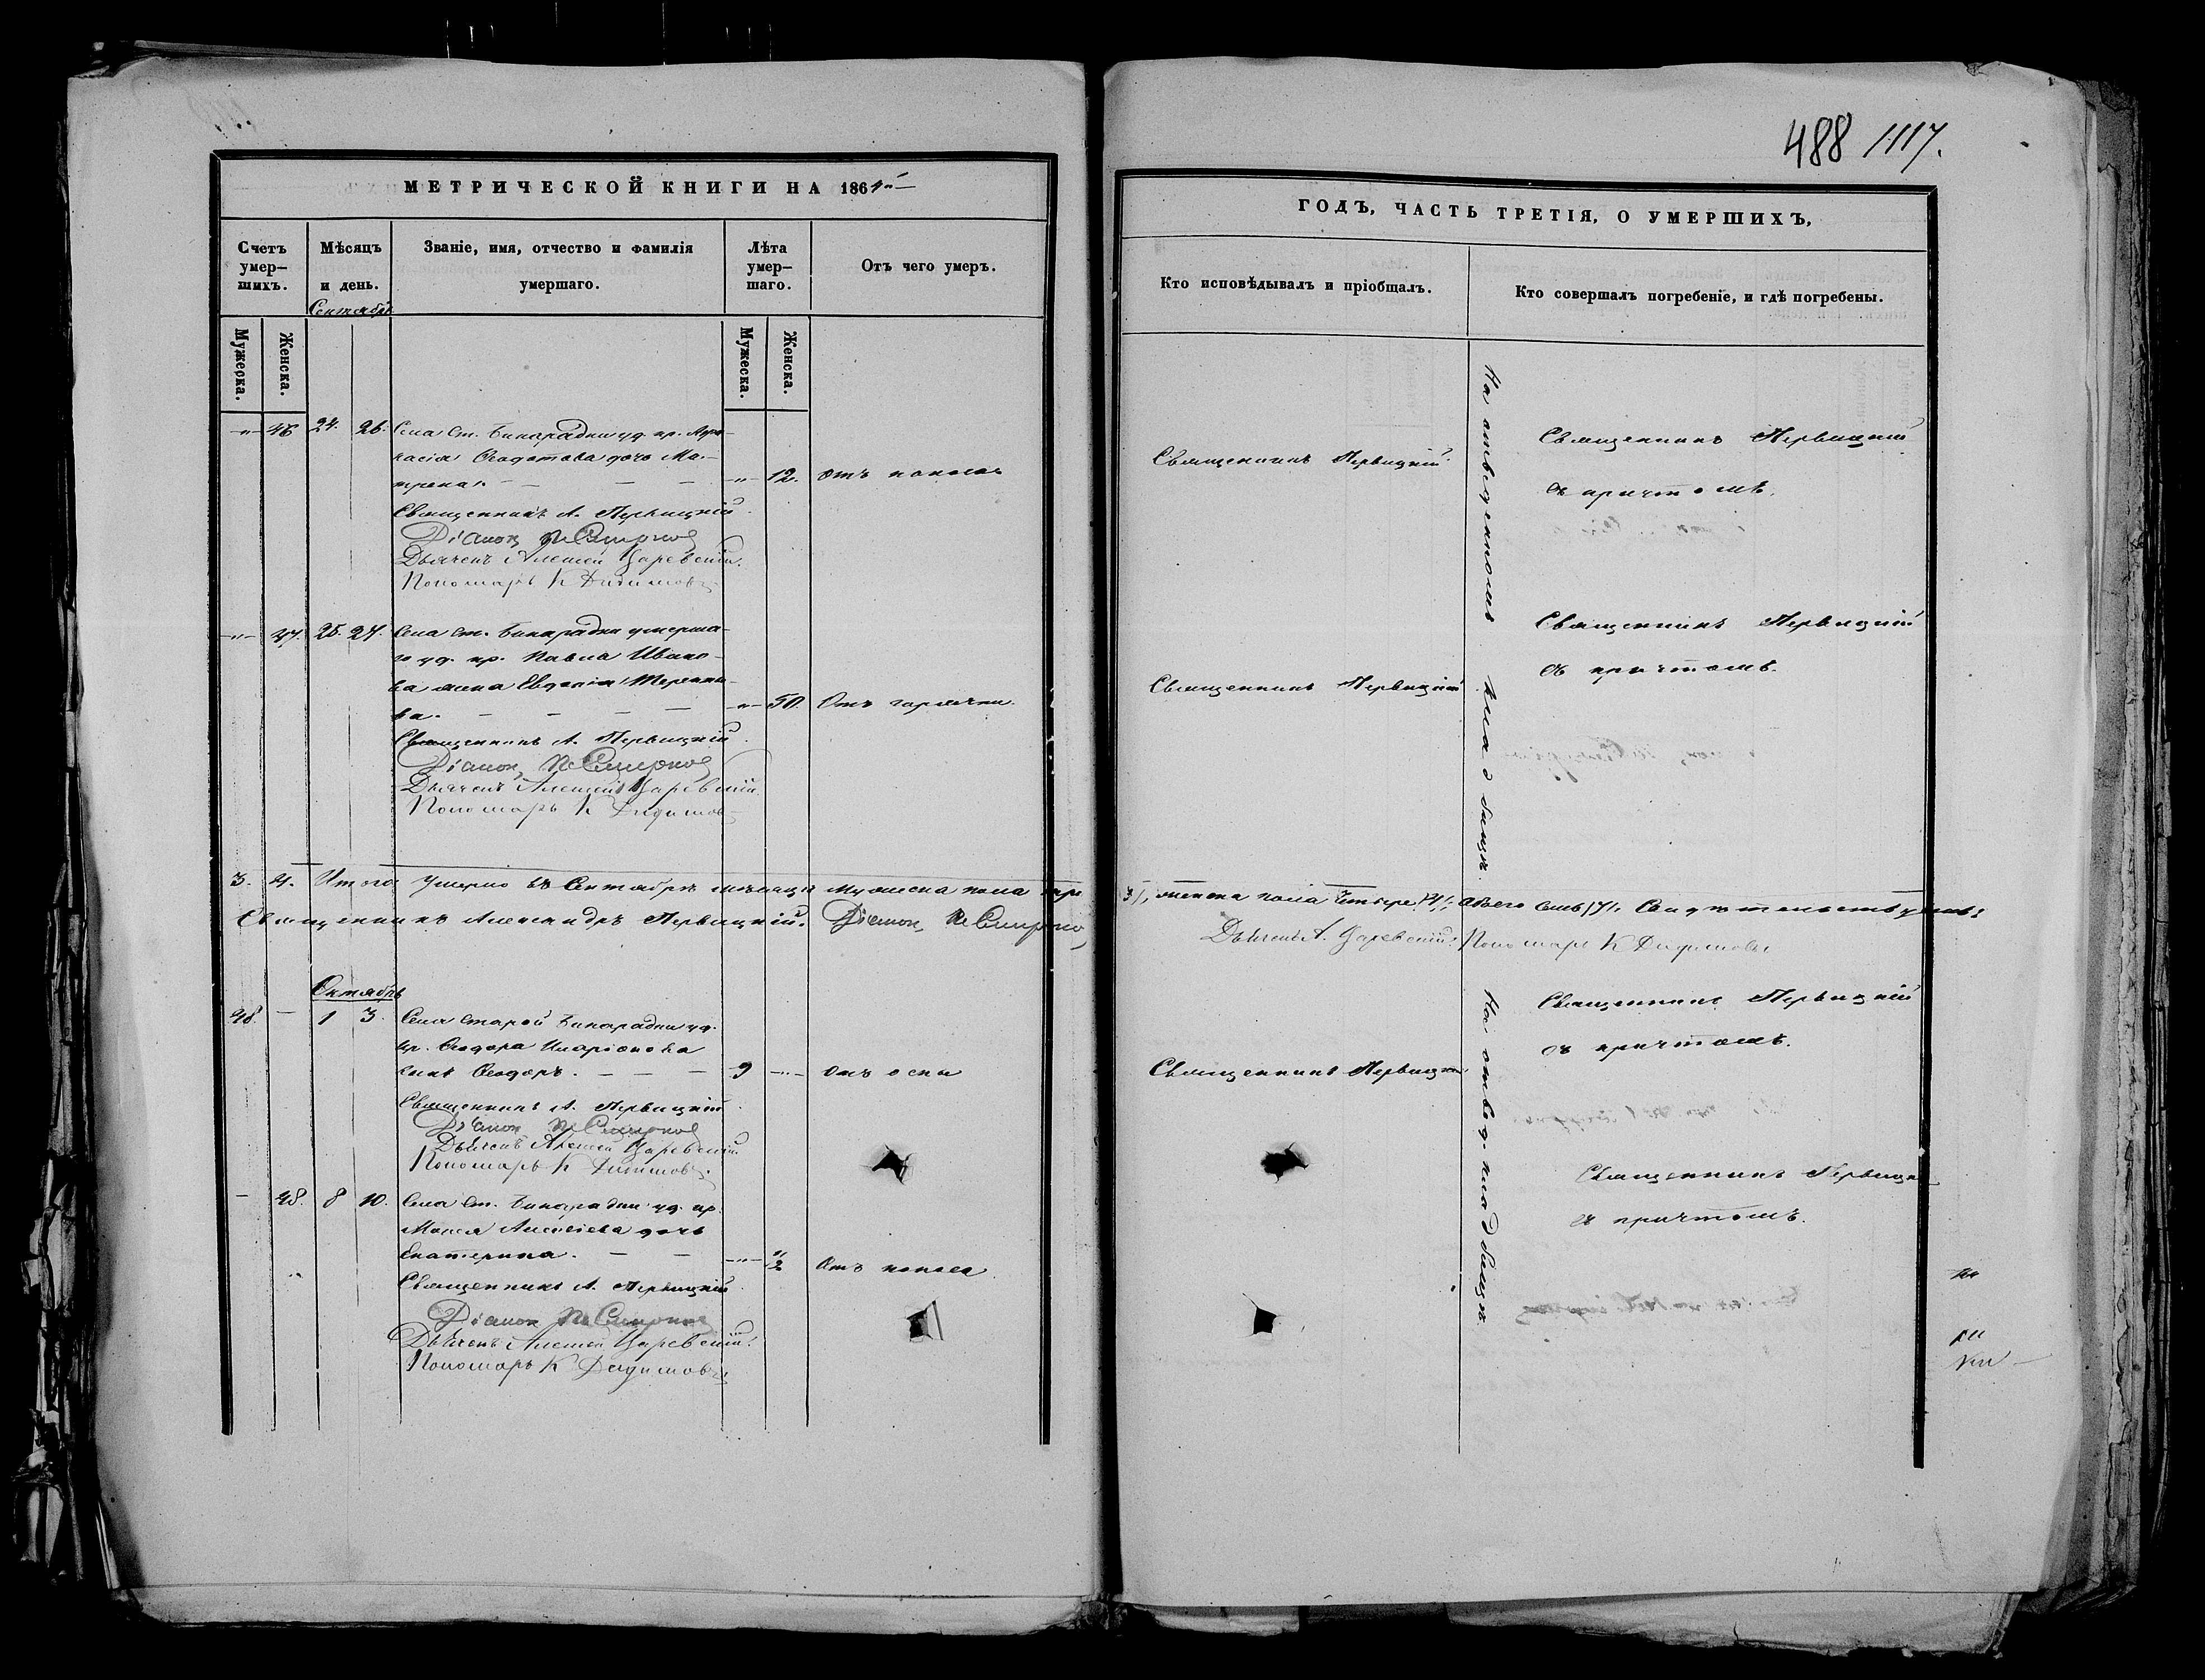 488 1117.
МЕТРИЧЕСКОЙ КНИГИ НА 1864й
ГОДЪ, ЧАСТЬ ТРЕТІЯ, О УМЕРШИХЪ,
Счетъ умер–шихъ.
Мѣсяцъ и день.
Званіе, имя, отчество и фамилія умершаго.
Лѣта умер–шаго.
Отъ чего умеръ.
Кто исповѣдывалъ и пріобщалъ.
Кто совершалъ погребеніе, и гдѣ погребены.
Сентябрь
Мужеска.
Женска.
Мужеска.
Женска.
46 24. 26. Села Ст. Бинарадки уд. кр. Афа–
насія Ѳеодотова дочь Ма–
трена. 12. отъ поноса
Священникъ А. Первицкій
Діаконъ Смирновъ
Дьячекъ Алексей Царевскій.
Пономарь К Дидимовъ
Священникъ Первицкій.
Священникъ Первицкій
съ причтомъ.
На отведенномъ кладбищѣ.
47. 25. 27. Села Ст. Бинарадки умерша–
го уд. кр. Павла Ивано–
ва жена Евдокія Терентье–
ва. 50. Отъ горячки.
Священникъ А. Первицкій
Діаконъ Смирновъ
Дьячекъ Алексей Царевскій
Пономарь К Дидимовъ
Священникъ Первицкій
Священникъ Первицкій
съ причтомъ.
3. 4. Итого умерло въ Сентябрѣ мѣсяцѣ мужеска пола три /3/, женска пола четыре /4/, обоего семь /7/. Свидѣтельствуемъ:
Священникъ Александръ Первицкій. Діаконъ Смирновъ
Дьячекъ А. Царевскій. Пономарь К Дидимовъ
Октябрь
48. 1 3. Села Старой Бинарадки уд.
кр. Ѳеодора Иларіонова
сынъ Ѳеодоръ. 9 отъ оспы
Священникъ А. Первицкій
Діаконъ Смирновъ
Дьячекъ Алексей Царевскій
Пономарь К Дидимовъ.
Священникъ Первицкій
Священникъ Первицкій
съ причтомъ.
На отвед. кладбищѣ.
48. 8 10. Села Ст. Бинарадки уд. кр.
Алексѣева дочь
Екатерина. Отъ поноса
Священникъ А. Первицкій
Діаконъ Смирновъ
Дьячекъ Алексей Царевскій.
Пономарь К Дидимовъ
Священникъ Первицкій
съ причтомъ.